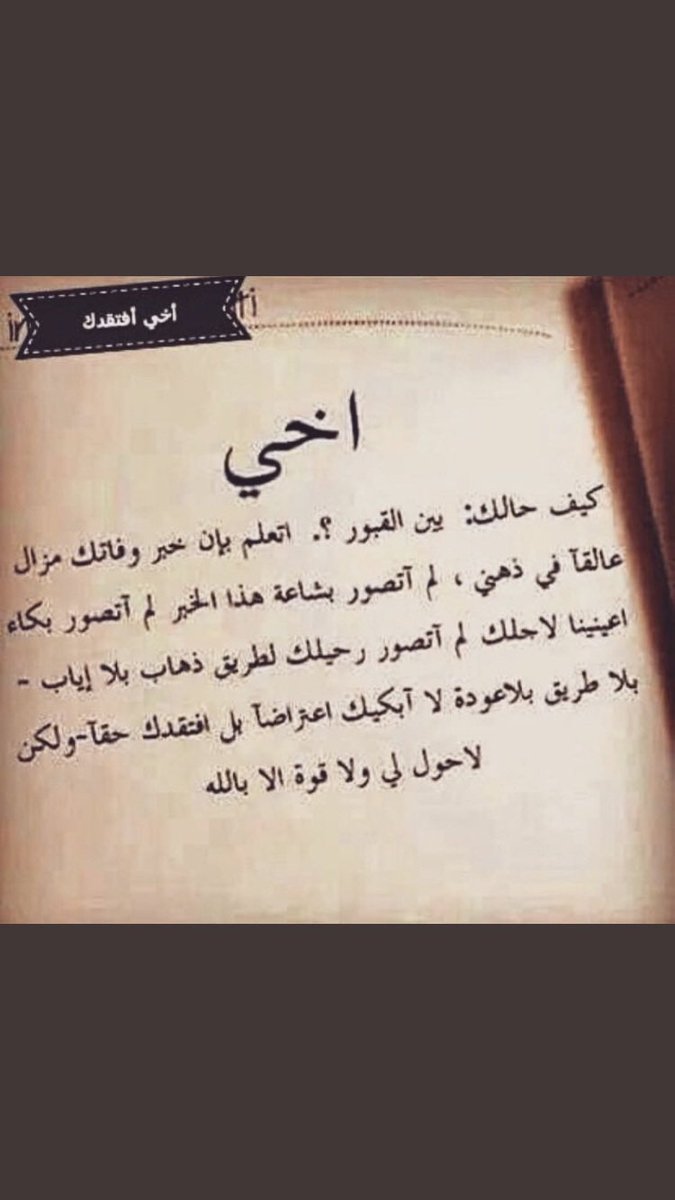 أخي أفتقدك
اخي
كيف حالك: بين القبور ؟. اتعلم بإن خبر وفاتك مزال
عالقآ في ذهني ، لم آتصور بشاعة هذا الخبر لم آتصور بكاء
اعيننا لاجلك لم آتصور رحيلك لطريق ذهاب بلا إياب -
بلا طريق بلاعودة لا آبكيك اعتراضآ بل افتقدك حقآ-ولكن
لاحول لي ولا قوة الا بالله